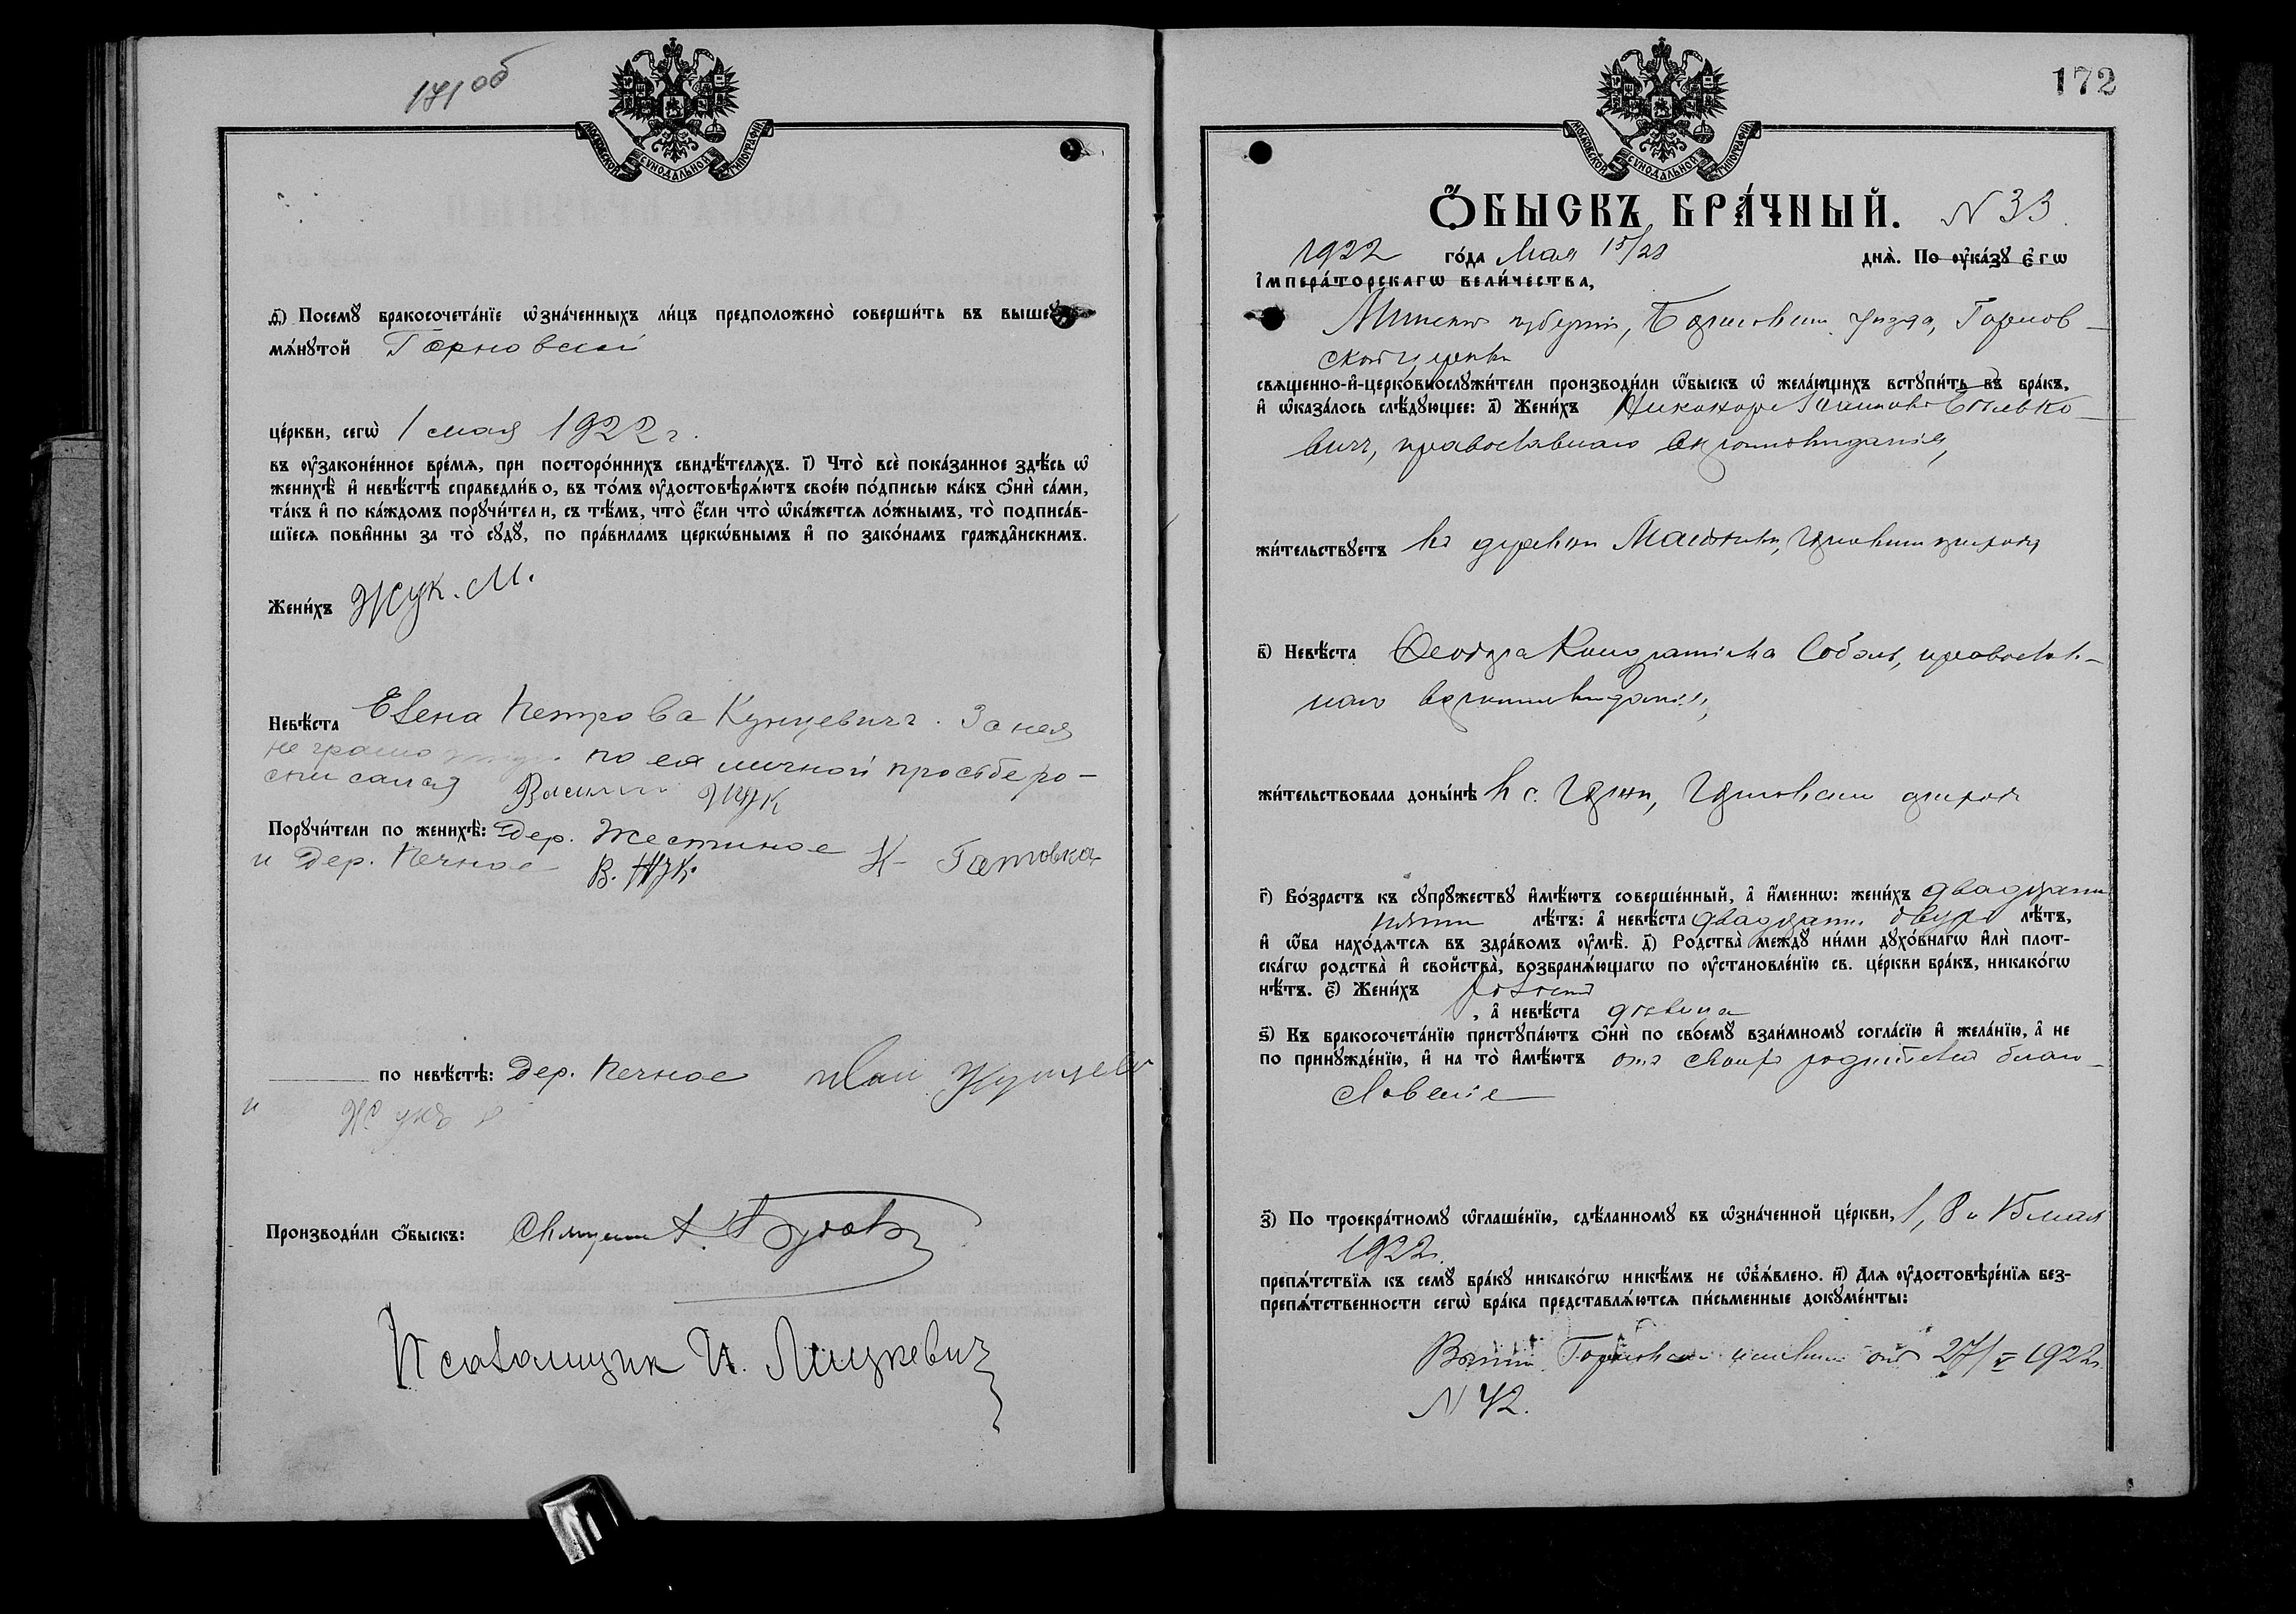 171об
МОСКОВСКОЙ СѴНОДАЛЬНОЙ ТИПОГРАФІИ
ѳ҃) Посемꙋ бракосочета́нїе ѡ҆зна́ченныхъ ли́цъ предположено̀ соверши́ть въ выше
мѧ́нꙋтой Горновской
це́ркви, сегѡ̀ 1 мая 1922 г.
въ ᲂу҆законе́нное вре́мѧ, при посторо́ннихъ свидѣ́телѧхъ. і҃) Что̀ всѐ пока́занное здѣ́сь ѡ҆
женихѣ̀ и҆ невѣ́стѣ справедли́во, въ то́мъ ᲂу҆достовѣрѧ́ютъ свое́ю по́дписью ка́къ ѻ҆нѝ са́ми,
та́къ и҆ по ка́ждомъ порꙋчи́тели, съ тѣ́мъ, что̀ є҆́сли что̀ ѡ҆ка́жется ло́жнымъ, то̀ подписа́в-
шїеся пови́нны за то̀ сꙋдꙋ̀, по пра́виламъ церко́внымъ и҆ по зако́намъ гражда́нскимъ.
Жени́хъ Жук. М.
Невѣ́ста Елена Петрова Кунцевичъ. За нея
не грамо по ея личной просьбе ро-
списался Василий Жук
Порꙋчи́тели по женихѣ̀: Дер. Жестиное К. Гатовка
и Дер. Печное В. Жук.
по невѣ́стѣ: Дер. Печное Иван Кунцев
и Жукъ
Производи́ли ѻ҆́быскъ: Священ. А.
Псаломщик И. Лицкевич
172
МОСКОВСКОЙ СѴНОДАЛЬНОЙ ТИПОГРАФІИ
Ѻ҆́БЫСКЪ БРА́ЧНЫЙ. N 33
1922 го́да Мая 15/28 днѧ̀. По ᲂу҆ка́зꙋ є҆гѡ̀
і҆мпера́торскагѡ вели́чества,
Минской губерніи, Борисовскаго уезда, Горнов-
ской церкви
свѧще́нно-и҆-церковнослꙋжи́тели производи́ли ѡ҆́быскъ ѡ҆ жела́ющихъ встꙋпи́ть въ бра́къ,
и҆ ѡ҆каза́лось слѣ́дꙋющее: а҃) Жени́хъ Никаноръ
вич, православнаго вероисповеданія,
жи́тельствꙋетъ въ деревни
в҃) Невѣ́ста Ѳеодора Кондратіева Соболь, православ-
наго вероисповеданія,
жи́тельствовала доны́нѣ в с.
г҃) Во́зрастъ къ сꙋпрꙋ́жествꙋ и҆мѣ́ютъ соверше́нный, а҆ и҆́менно: жени́хъ двадцати
пяти лѣ́тъ: а҆ невѣ́ста двадцати двухъ лѣ́тъ,
и҆ ѡ҆́ба нахо́дѧтсѧ въ здра́вомъ ᲂу҆мѣ̀. д҃) Родства̀ междꙋ̀ ни́ми дꙋхо́внагѡ и҆лѝ плот-
ска́гѡ родства̀ и҆ свойства̀, возбранѧ́ющагѡ по ᲂу҆становле́нїю св. це́ркви бра́къ, никако́гѡ
нѣ́тъ. є҃) Жени́хъ холостъ
, а҆ невѣ́ста девица
ѕ҃) Къ бракосочета́нїю пристꙋпа́ютъ ѻ҆нѝ по своемꙋ̀ взаи́мномꙋ согла́сїю и҆ жела́нїю, а҆ не
по принꙋжде́нїю, и҆ на то̀ и҆мѣ́ютъ отъ своихъ родителей благо-
словеніе
з҃) По троекра́тномꙋ ѡ҆глаше́нїю, сдѣ́ланномꙋ въ ѡ҆зна́ченной це́ркви, 1, 8 и 15 мая
1922 г.
препѧ́тствїѧ къ семꙋ̀ бра́кꙋ никако́гѡ никѣ́мъ не ѡ҆б̾ѧ́влено. и҃) Длѧ ᲂу҆достовѣре́нїѧ без-
препѧ́тственности сегѡ̀ бра́ка представлѧ́ютсѧ пи́сьменные докꙋме́нты:
от 27/V 1922 г.
N 42.